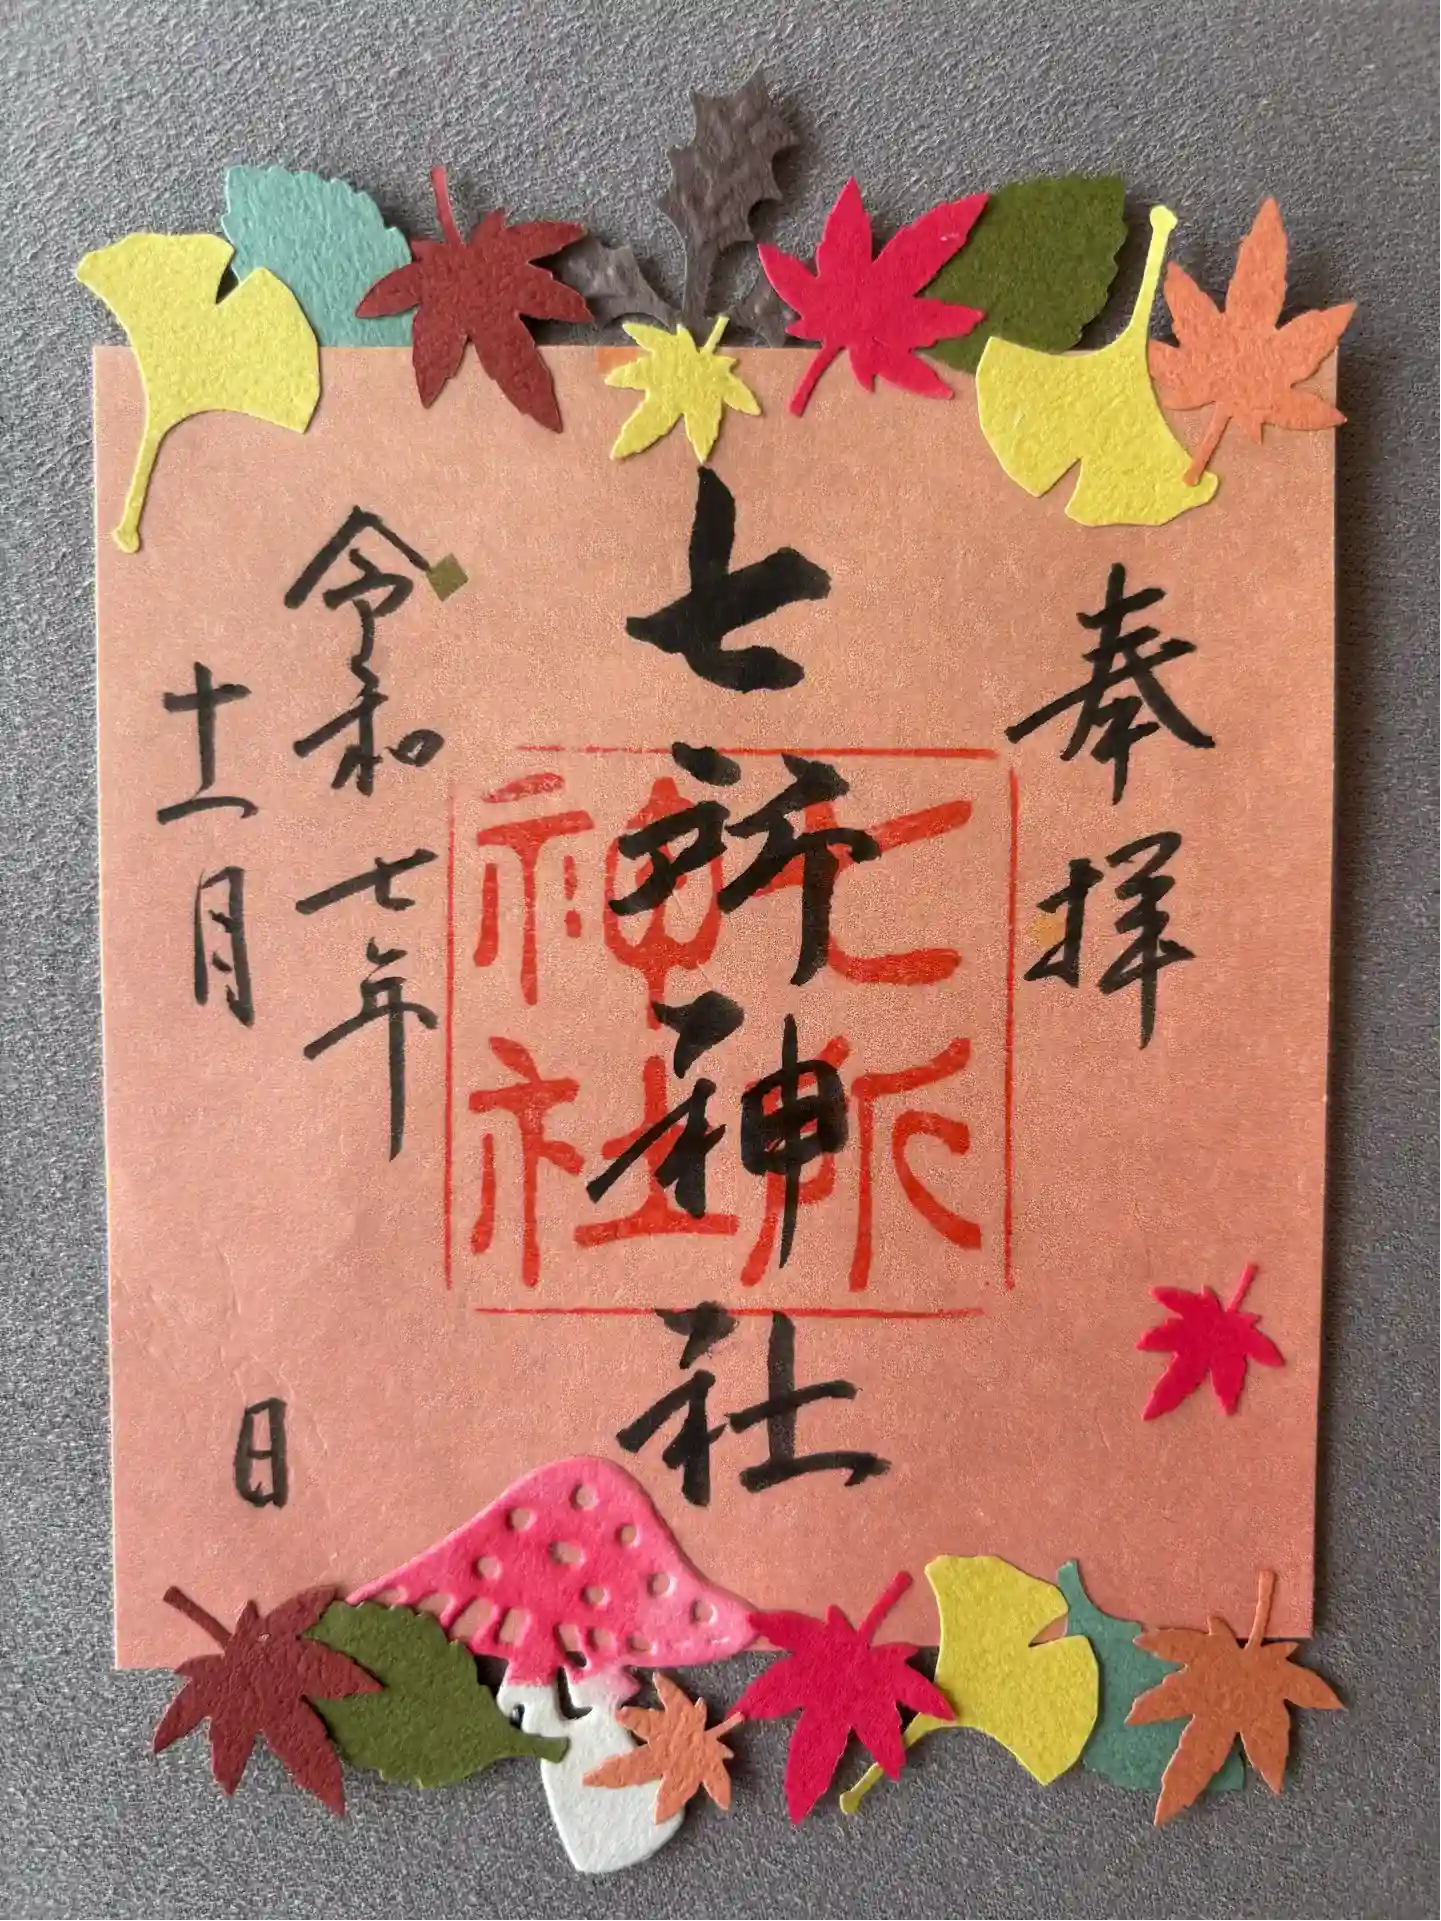 奉拝
七所神社
七所
神社
令和七年
十一月 日